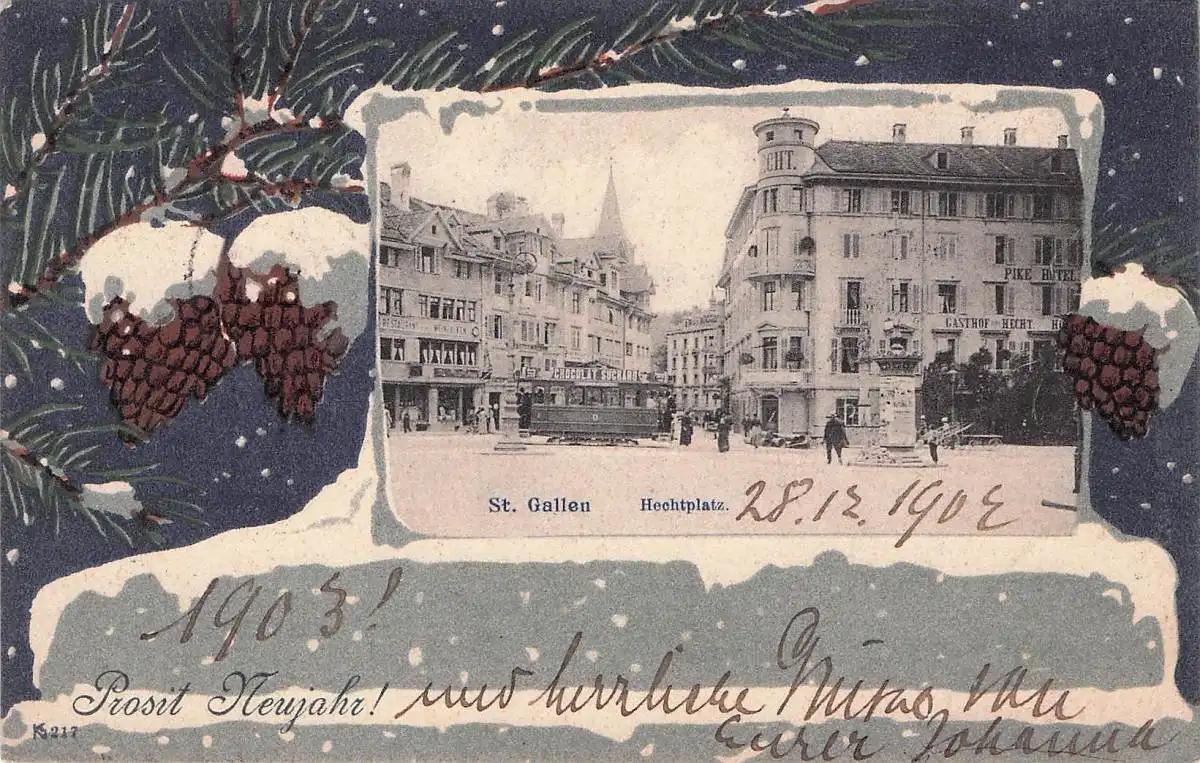 CHT.
PIKE HOTEL
GASTHOF ZUM HECHT
RESTAURANT
CHOCOLAT SUCHARD
St. Gallen Hechtplatz. 28.12.1902
1903!
Prosit Neujahr! und herzliche Grüsse von
Eurer Johanna
K 217